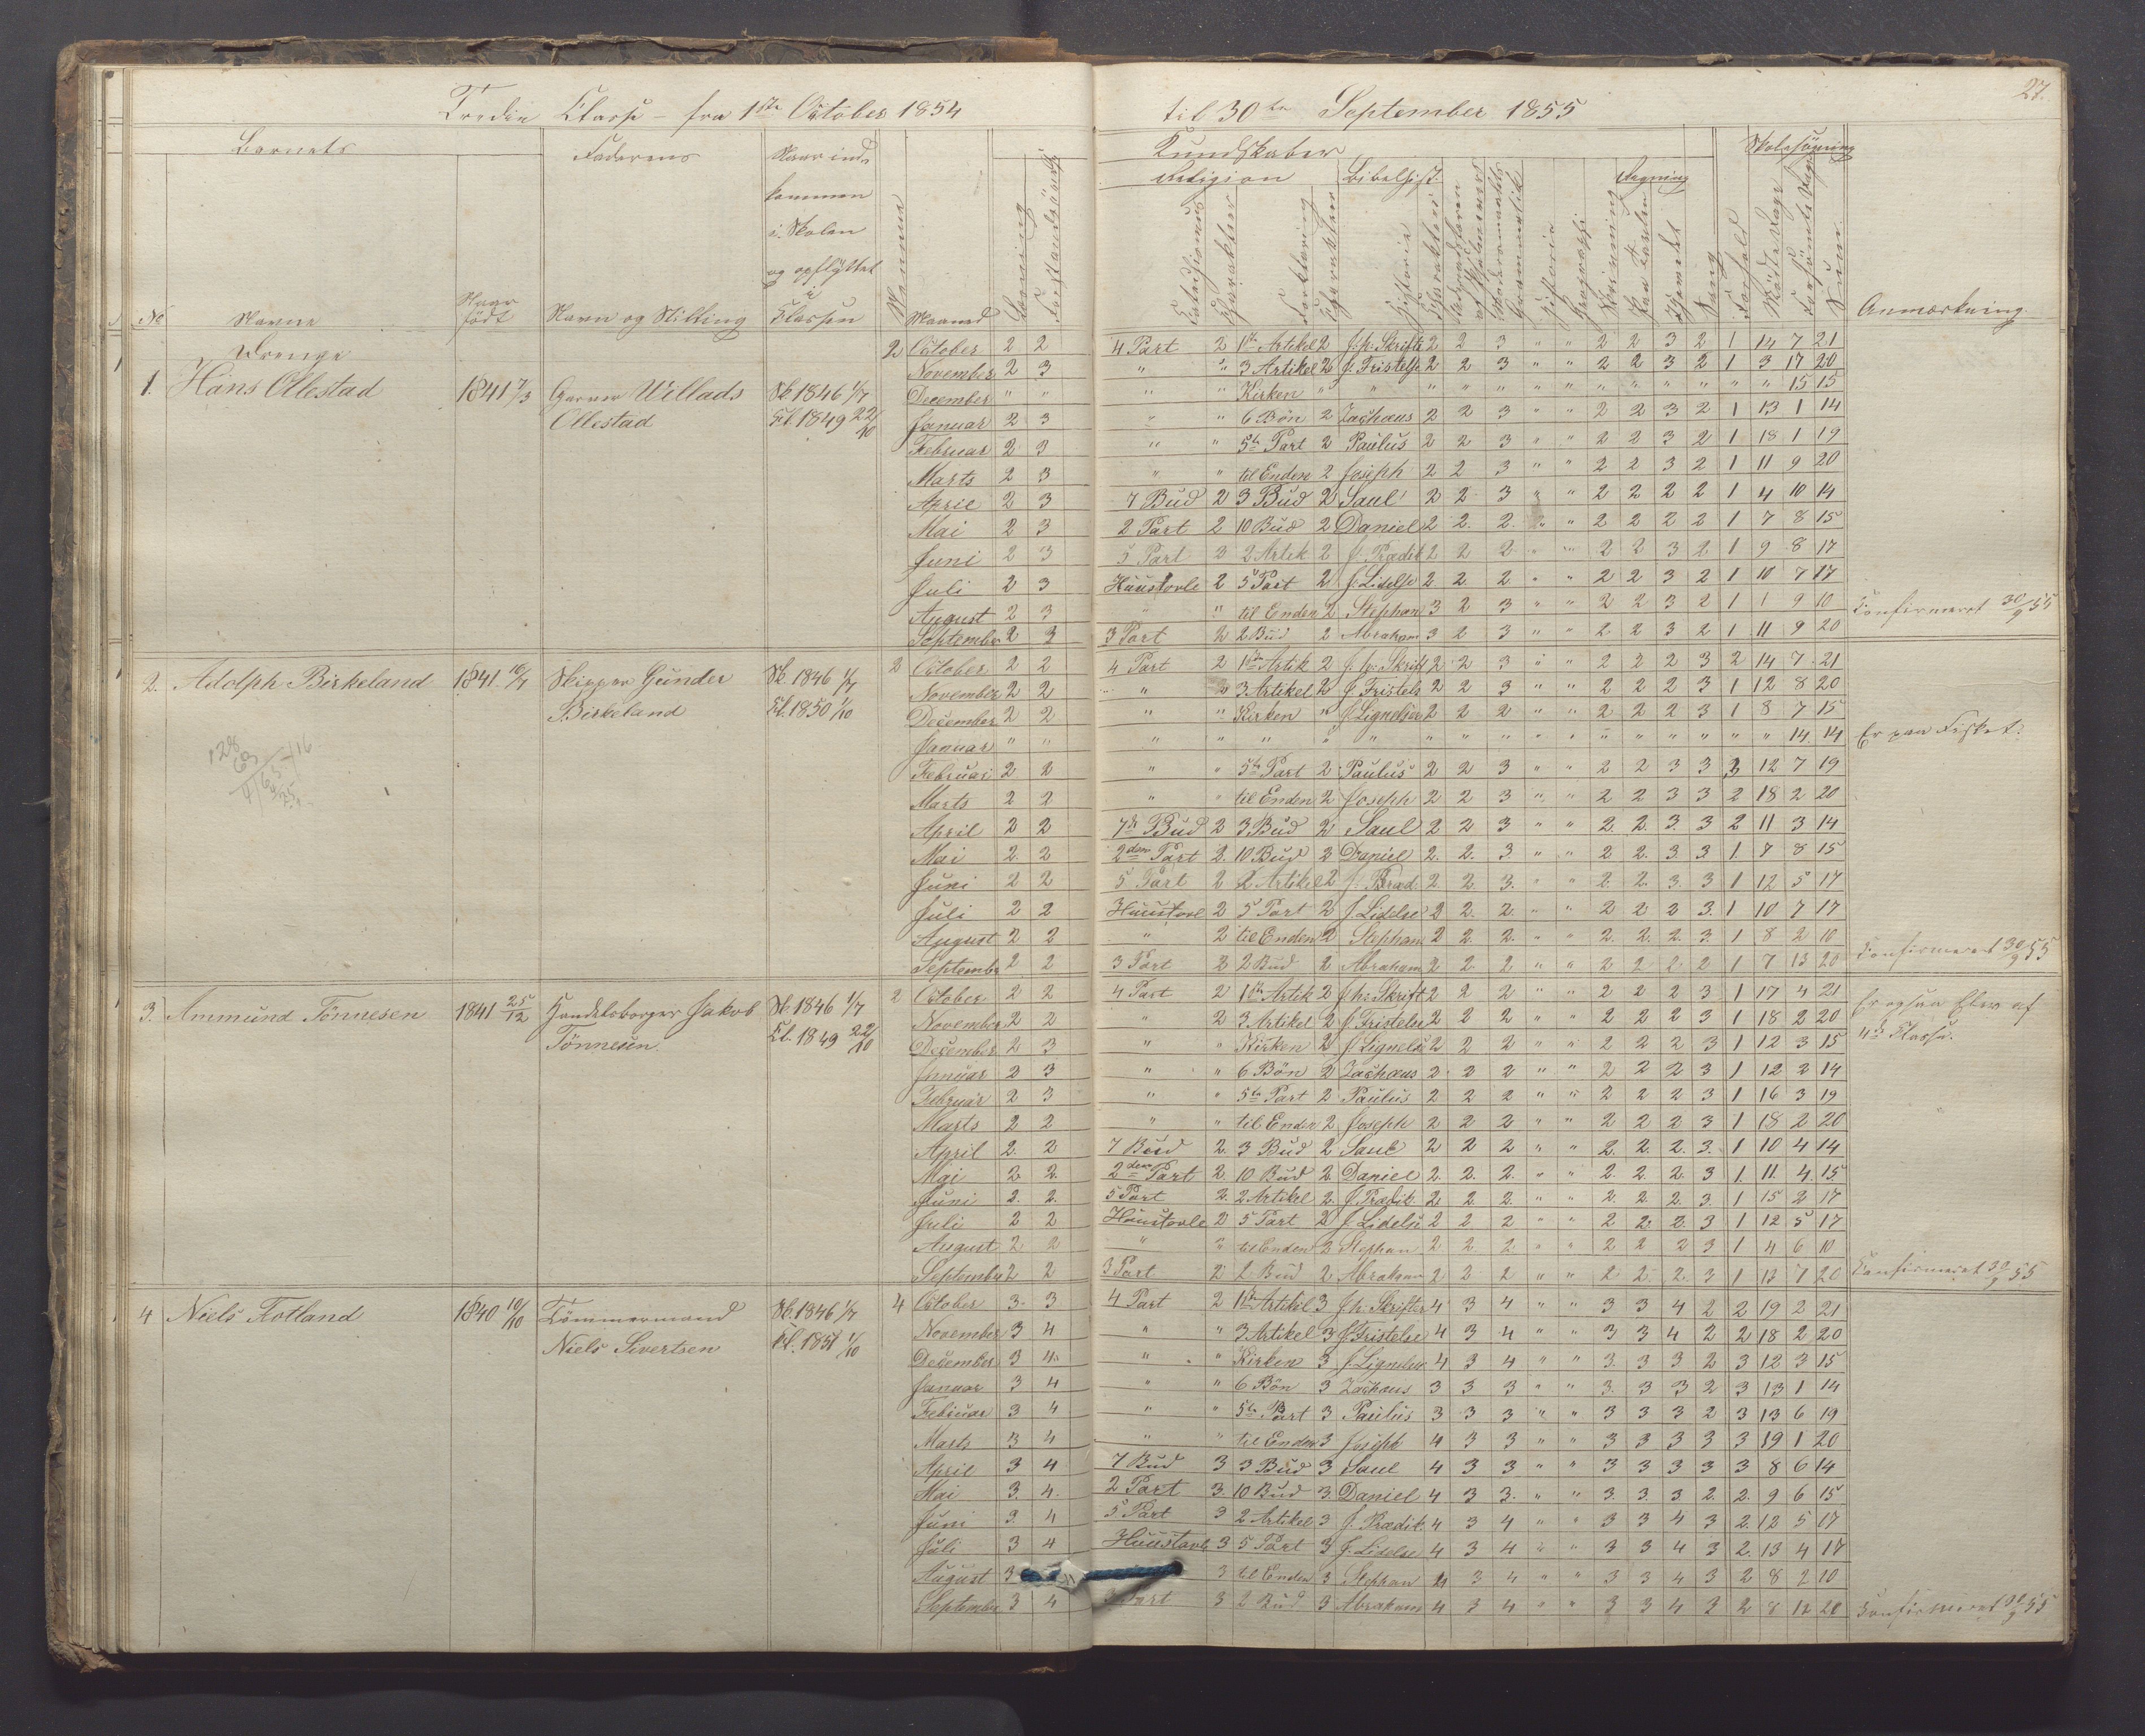 27.
Tredie Classe – fra 1ste October 1854 til 30te September 1855
Barnets
Faderens
Naar ind-
kommen
i Skolen
og opflyttet
i
Classen
Kundskaber
Religion
Bibelhist.
Regning
Skolesøgning
No
Navne
Naar
født
Navn og Stilling
Maaned
Catechismus
Forklaring
Historie
Sang
Forhold
Mødte Dage
Forsømte Dage
Sum
Anmærkning
Drenge
1. Hans Ollestad
1841 7/3
Garver Willads
Ollestad
Sk. 1846 1/7
Cl. 1849 22/10
2
October 2 2 4 Part 2 1ste Artikel 2 J. h. Skrifte 2 2 3 " " 2 2 3 2 1 14 7 21
November 2 3 " " 3 Artikel 2 J. Fristelse 2 2 3 " " 2 2 3 2 1 3 17 20
December " " " " Kirken " " " " " " " " " " " " " 15 15
Januar 2 3 " " 6 Bön 2 Zachæus 2 2 3 " " 2 2 3 2 1 13 1 14
Februar 2 3 " " 5te Part 2 Paulus 2 2 3 " " 2 2 3 2 1 18 1 19
Marts 2 3 " " til Enden 2 Joseph 2 2 3 " " 2 2 3 2 1 11 9 20
April 2 3 7 Bud 2 3 Bud 2 Saul 2 2 3 " " 2 2 2 2 1 4 10 14
Mai 2 3 2 Part 2 10 Bud 2 Daniel 2 2. 2. " " 2 2 2 2 1 7 8 15
Juni 2 3 5 Part 2 2 Artik 2 J. Prædik 2 2 2 " " 2 2 3 2 1 9 8 17
Juli 2 3 Huustavle 2 5 Part 2 J. Lidelse 2 2 2 " " 2 2 3 2 1 10 7 17
August 2 3 " " til Enden 2 Stephan 3 2 3 " " 2 2 3 2 1 1 9 10 Confirmeret 30/9 55
September 2 3 3 Part 2 2 Bud 2 Abraham 3 2 3 " " 2 2 3 2 1 11 9 20
2. Adolph Birkeland
1841 16/7
Skipper Gunder
Birkeland
Sk. 1846 1/7
Cl. 1850 1/10
2
October 2 2 4 Part 2 1ste Artik 2 J. h. Skrift 2 2 3 " " 2 2 2 3 2 14 7 21
November 2 2 " " 3 Artikel 2 J. Fristels 2 2 3 " " 2 2 2 3 1 12 8 20
December 2 2 " " Kirken " J. Lignelser 2 2 2 " " 2 2 2 3 1 8 7 15
Januar " " " " " " " " " " " " " " " " " " 14 14 Er paa Fisket.
Februar 2 2 " " 5te Part 2 Paulus 2 2 3 " " 2 2 3 3 3 12 7 19
Marts 2 2 " " til Enden 2 Joseph 2 2 3 " " 2 2 3 3 2 18 2 20
April 2 2 7de Bud 2 3 Bud 2 Saul 2 2 3 " " 2. 2. 3. 3 2 11 3 14
Mai 2. 2 2den Part 2. 10 Bud 2 Daniel 2. 2. 3. " " 2 2. 3. 3 1. 7 8 15
Juni 2 2 5 Part 2 2 Artikel 2 J. Præd. 2. 2 3. " " 2. 2. 3. 3 1 12 5 17
Juli 2 2 Huustavl 2 5 Part 2 J. Lidelse 2 2. 2. " " 2 2 2 3. 1 10 7 17
August 2 2 " 2 til Enden 2 Stephan 2 2. 2. " " 2. 2. 2. 3. 1 8 2 10
Septembr 2 2 3 Part 2 2 Bud 2 Abraham 2 2 2 " " 2 2 2 2 1 7 13 20 Confirmeret 30/9 55
3. Ammund Tönnesen
1841 25/12
Handelsborger Jakob
Tönnesen
Sk. 1846 1/7
Cl. 1849 22/10
2
October 2 2 4 Part 2 1ste Artik 2 J. h. Skrift 2 2 2 " " 2 2 2 3 1 17 4 21 Er ogsaa Elev af
November 2 2 " 2 3 Artikel 2 J. Fristelse 2 2 2 " " 2 2 2 3 1 18 2 20 4de Classe.
December 2 3 " " Kirken 2 J. Lignelse 2 2 2 " " 2 2 2 3 1 12 3 15
Januar 2 3 " " 6 Bön 2 Zachæus 2 2 2 " " 2 2 2 3 1 12 2 14
Februar 2 3 " " 5te Part 2 Paulus 2 2 2 " " 2 2 2 3 1 16 3 19
Marts 2 2 " " til Enden 2 Joseph 2 2 2 " " 2 2 2 3 1 18 2 20
April 2. 2 7 Bud 2. 3 Bud 2 Saul 2 2 2 " " 2. 2. 2. 3. 1 10 4 14
Mai 2 2. 2den Part 2. 10 Bud 2. Daniel 2. 2. 2. " " 2. 2. 2. 3 1. 11. 4. 15.
Juni 2. 2. 5 Part 2. 2 Artikel 2. J. Prædik. 2 2. 2 " " 2. 2. 2. 3. 1 15 2 17
Juli 2 2 Huustavle 2 5 Part 2 J. Lidelse 2 2 2 " " 2 2. 2. 3 1 12 5 17
August 2 2 " " til Enden 2 Stephan 2 2 2 " " 2 2 2 3 1 4 6 10
Septembr 2 2 3 Part 2 2 Bud 2 Abraham 2 2 2 " " 2 2. 2. 3 1 13 7 20 Confirmeret 30/9 55
4 Niels Flotland
1840 10/10
Tömmermand
Niels Sivertsen
Sk. 1846 1/7
Cl. 1851 1/10
4
October 3 3 4 Part 2 1ste Artikel 3 J. h. Skrifter 4 3 4 " " 3 3 4 2 2 19 2 21
November 3 4 " " 3 Artikel 3 J. Fristelse 4 3 4 " " 3 3 4 2 2 18 2 20
December 3 4 " " Kirken 3 J. Lignelser 4 3 4 " " 3. 3 3 2 3 12 3 15
Januar 3 4 " " 6 Bön 3 Zachæus 3 3 3 " " 3. 3 3 2 3 13 1 14
Februar 3 4 " " 5te Part 3 Paulus 3 3 3 " " 3 3 3 2 3 13 6 19
Marts 3 4 " " til Enden 3 Joseph 4 3 3 " " 3 3 3 3 3 19 1 20
April 3 4 7 Bud 3 3 Bud 3 Saul 4 3 3 " " 3 3 3 3 3 8 6 14
Mai 3. 4. 2 Part 3. 10 Bud 3. Daniel 4 3 3. " " 3. 3. 3 2. 2. 9 6 15
Juni 3. 4 5 Part 3 2 Artikel 3 J. Prædik. 4 3 4 " " 3 3 4 3 2. 12 5 17
Juli 3 4 Huustavle 3 5 Part 3 J. Lidelse 4 3 4 " " 3 3 4 3 2. 13 4 17
August 3 3 til Enden 3 Stephan 4 3 4 " " 3 3 4 3 2 8 2 10
Septembr 3 4 3 Part 3 2 Bud 3 Abraham 4 3 4 " " 3 3 4 3 2 8 12 20 Confirmeret 30/9 55